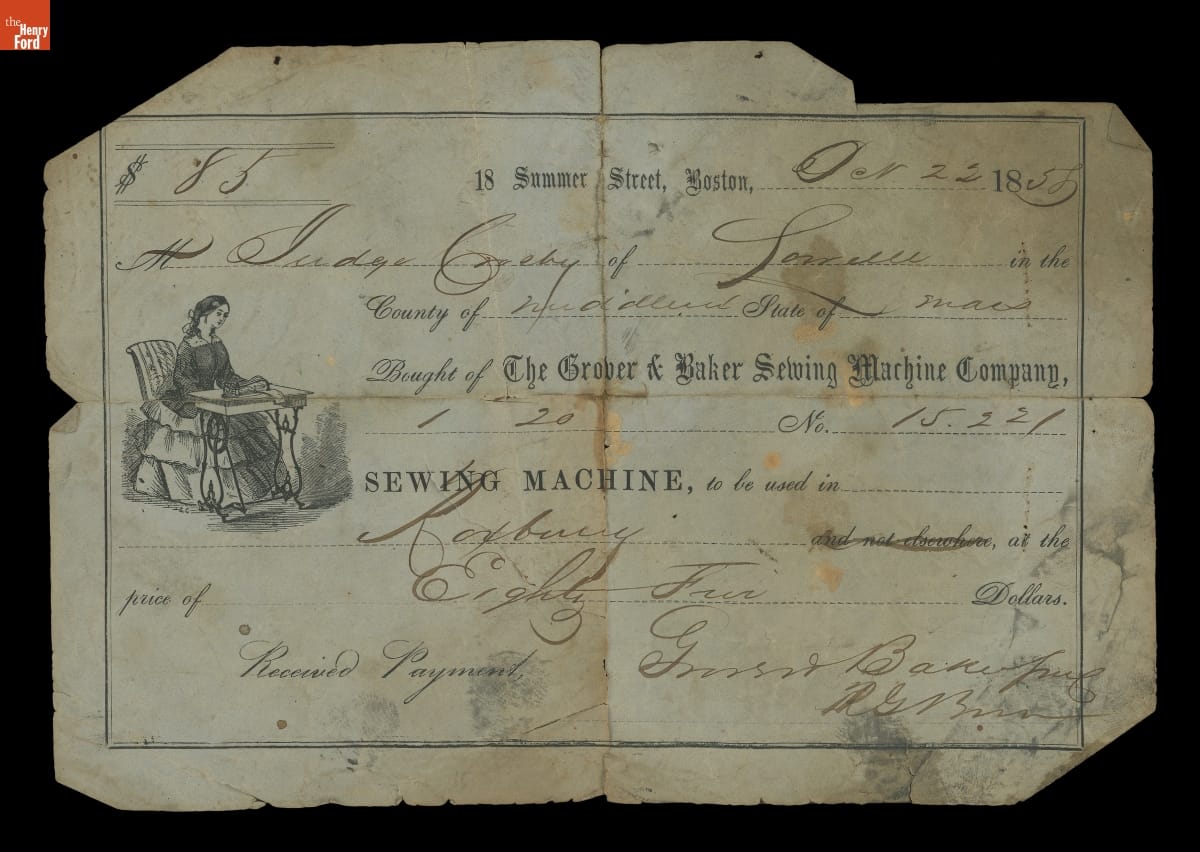 the
Henry
Ford
$ 85
18 Summer Street, Boston, Oct 22 1858
M Judge Crosby of Lowell in the
County of Middlesex State of Mass
Bought of The Grover & Baker Sewing Machine Company,
1 20 No. 15.221
SEWING MACHINE, to be used in
Roxbury and not elsewhere, at the
price of Eighty Five Dollars.
Received Payment,
Grover & Baker